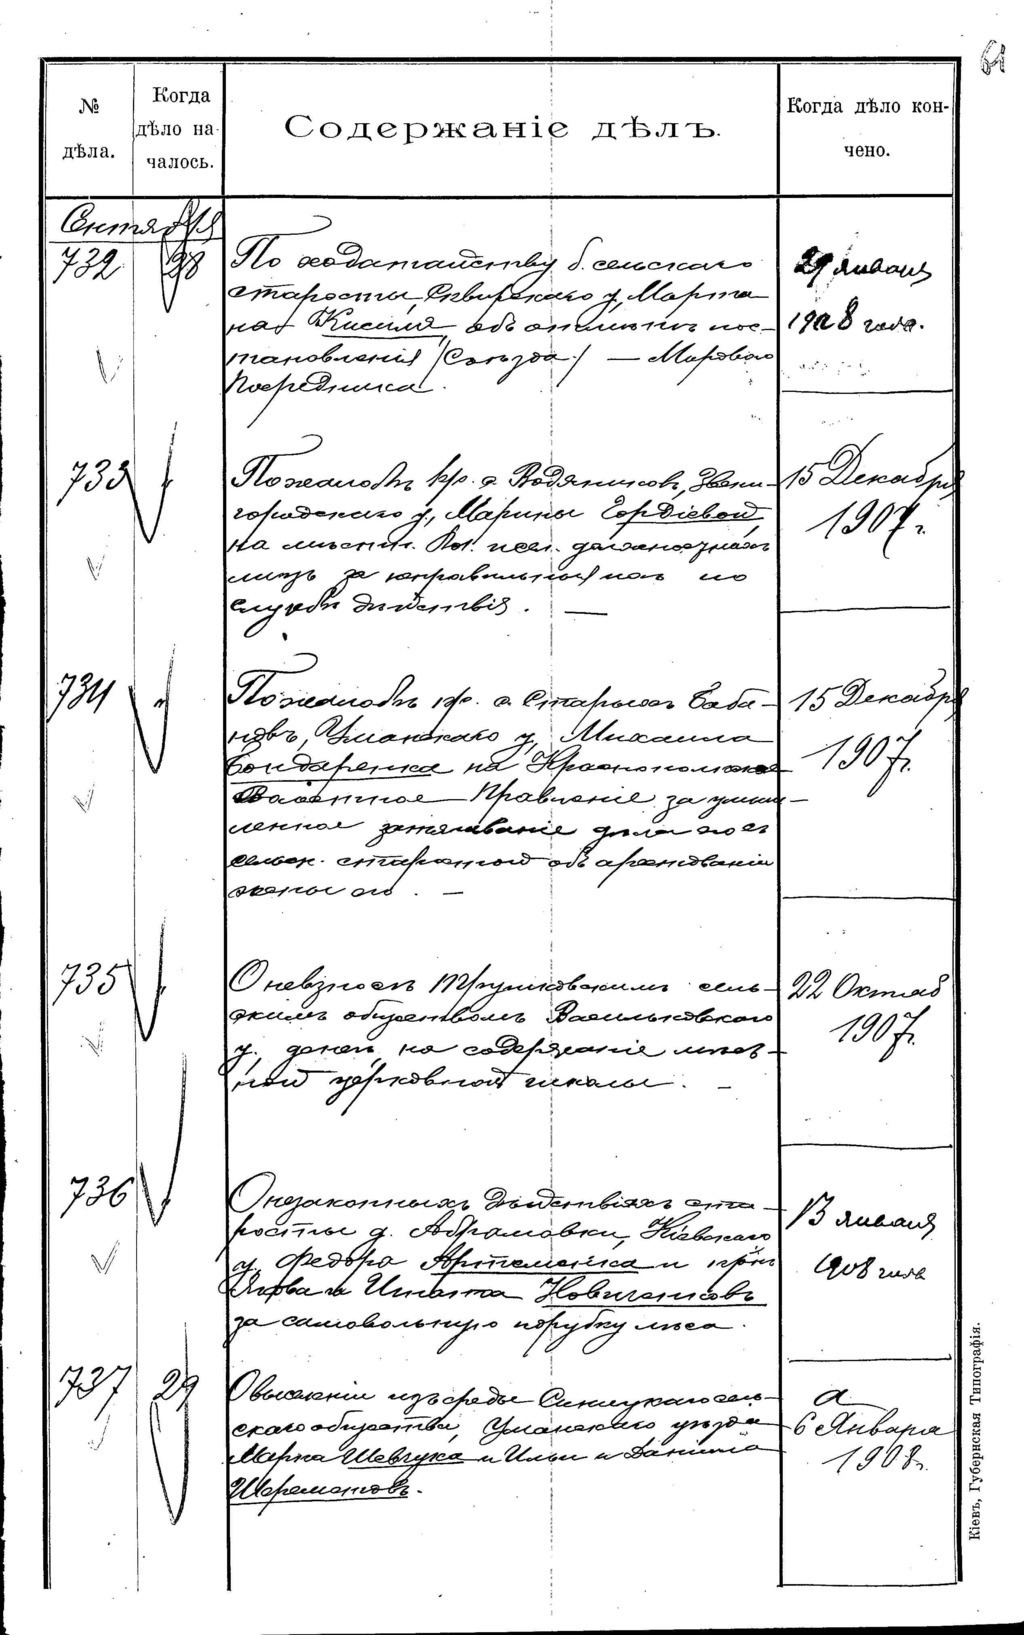 61
№ дѣла.
Когда дѣло началось.
Содержаніе дѣлъ.
Когда дѣло кончено.
Сентября
732
28
По ходатайству б. сельскаго
старосты, Сквирскаго у, Марти
на Кисиля объ отмѣнѣ пос-
тановленія /Съѣзда/ — Мирового
Посредника.
29 января
1908 года.
733
По жалобѣ кр. с. Водяниковъ, Звени-
городскаго у, Марины Гордіевой
на мѣстн. Вол. и сел. должностныхъ
лицъ за неправильныя ихъ по
службѣ дѣйствія. —
15 Декабря
1907 г.
734
По жалобѣ кр. с. Старыхъ Баба-
новъ, Уманскаго у, Михаила
Бондаренка на Краснопольское
Волостное Правленіе за умыш-
ленное затягиваніе дѣла его съ
сельск. старостой объ арестованіи
жены его. —
15 Декабря
1907 г.
735
О невзносѣ Трушковскимъ сель-
скимъ обществомъ Васильковскаго
у., денегъ на содержаніе мѣст-
ной церковной школы. —
22 Октяб
1907 г.
736
О незаконныхъ дѣйствіяхъ ста-
росты д. Абрамовки, Кіевскаго
у. Федора Артеменка и кр-нъ
Якова и Игната Новиченковъ
за самовольную порубку лѣса.
13 января
1908 года
737
29
О высылкѣ изъ среды сель-
скаго общества, Уманскаго уѣзда
Марка Шевчука и Ильи и Даніила
Шереметовъ.
6 Января
1908 г.
Кіевъ, Губернская Типографія.